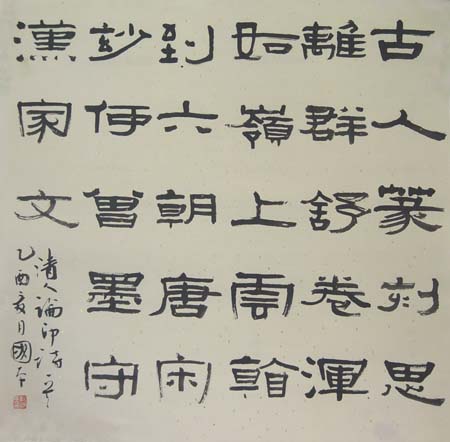 古人篆刻思
離群舒卷渾
如嶺上雲看
到六朝唐宋
玅何曾墨守
漢家文
清人論印詩一首
乙酉夏月國